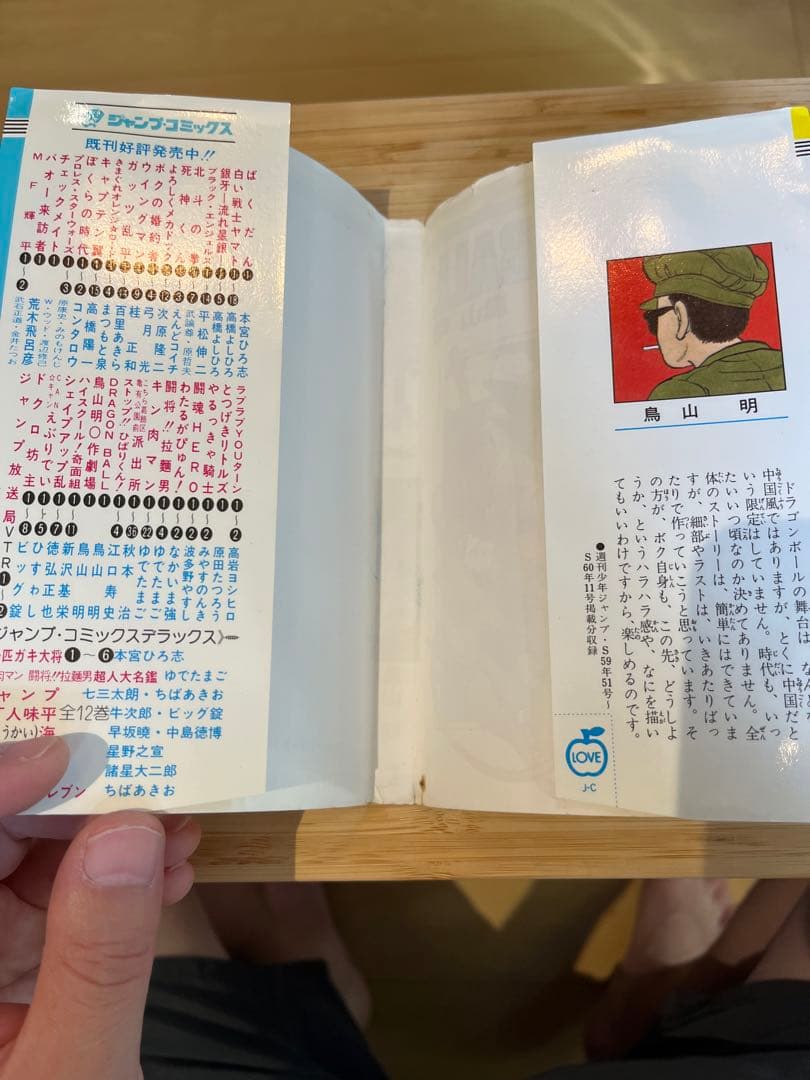 ジャンプ・コミックス
既刊好評発売中!!
ばくだん ❶ 本宮ひろ志
白い戦士ヤマト ❶〜⓲ 高橋よしひろ
銀牙―流れ星 銀― ❶〜❺ 高橋よしひろ
ブラック・エンジェルズ ❶〜⓮ 平松伸二
北斗の拳 ❶〜❼ 武論尊・原哲夫
死神くん ❶〜❸ えんどコイチ
よろしくメカドック ❶〜⓬ 次原隆二
ボクの婚約者 ❶〜❹ 弓月光
ウイングマン ❶〜❾ 桂正和
ガッツ乱平 百里あきら
きまぐれオレンジ★ロード ❶〜❹ まつもと泉
キャプテン翼 高橋陽一
ぼくらの時代 ❶ コンタロウ
プロレス・スターウォーズ ❶〜❸ 原康史・みのもけんじ
チェックメイト ❶ W・ウッド・渡辺修己
バオー来訪者 ❶ 荒木飛呂彦
MF輝平 ❶〜❷ 武石正道・金井たつお
ラブラブYOUターン ❶〜❷ 高岩ヨシヒロ
とつげきリトルズ ❶
やるっきゃ騎士 ❶
闘魂HERO ❶
わたるがぴゅん! なかいま強
闘将!!拉麵男 ❶〜❹ ゆでたまご
キン肉マン ❶〜㉒ ゆでたまご
こちら葛飾区亀有公園前派出所 ❶〜㊱ 秋本治
ストップ!!ひばりくん! ❶〜❹ 江口寿史
DRAGON BALL ❶ 鳥山明
鳥山明○作劇場 ❶ 鳥山明
ハイスクール!奇面組 ❶〜⓫ 新沢基栄
シェイプアップ乱 ❶〜❼ 徳弘正也
CAN☆キャンえぶりでい ❶〜❺
ドクロ坊主 ❶〜❽ ビッグ錠
ジャンプ放送局VTR ❶
ジャンプ・コミックスデラックス
匹ガキ大将 ❶〜❻ 本宮ひろ志
肉マン 闘将!!拉麵男 超人大名鑑 ゆでたまご
ャンプ 七三太朗・ちばあきお
丁人味平 全12巻 牛次郎・ビッグ錠
うかい)海 早坂暁・中島徳博
星野之宣
諸星大二郎
レブン ちばあきお
鳥山 明
ドラゴンボールの舞台は、なんと
中国風ではありますが、とくに中国だと
いう限定はしていません。時代も、いっ
たいいつ頃なのか決めてありません。全
体のストーリーは、簡単にはできていま
すが、細部やラストは、いきあたりばっ
たりで作っていこうと思っています。そ
の方が、ボク自身も、この先、どうしよ
うか、というハラハラ感や、なにを描い
てもいいわけですから、楽しめるのです。
●週刊少年ジャンプ・S59年51号〜
S60年11号掲載分収録
LOVE
J-C